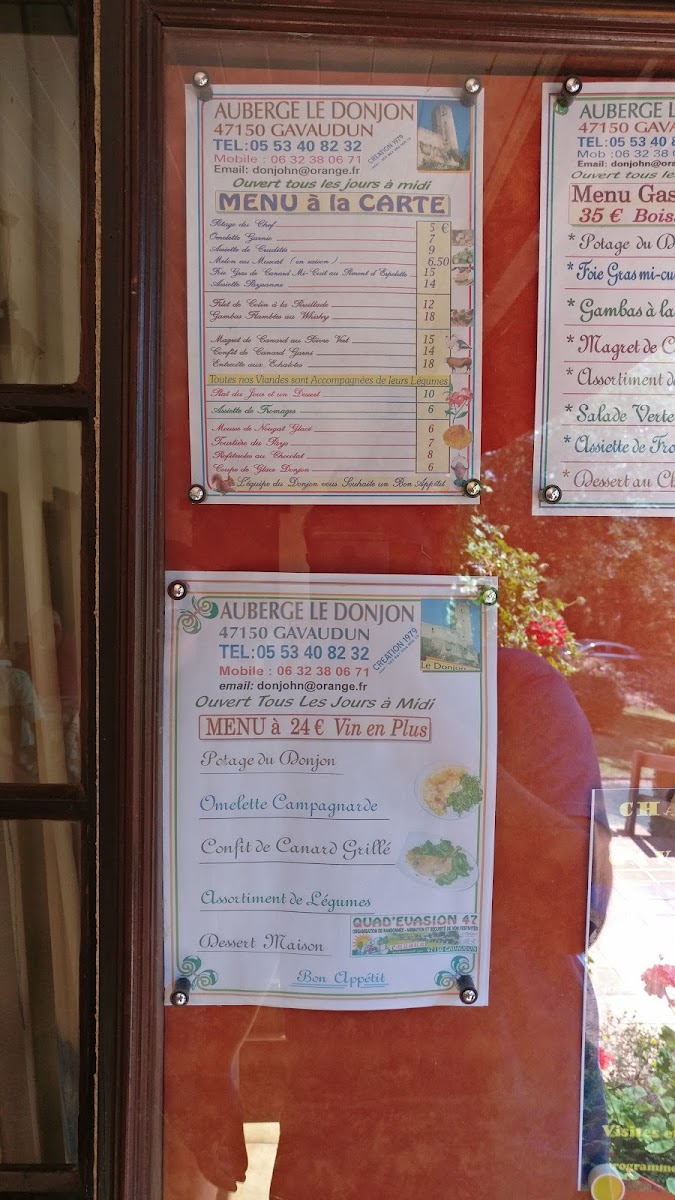 AUBERGE LE DONJON
47150 GAVAUDUN
TEL:05 53 40 82 32
Mobile : 06 32 38 06 71
CREATION 1979
Email: donjohn@orange.fr
Ouvert tous les jours à midi
MENU à la CARTE
Potage du Chef 5 €
Omelette Garnie 7
Assiette de Crudités 9
Melon au Muscat (en saison) 6.50
Foie Gras de Canard Mi-Cuit au Piment d'Espelette 15
Assiette Paysanne 14
Filet de Colin à la 12
Gambas Flambées au Whisky 18
Magret de Canard au Poivre Vert 15
Confit de Canard Garni 14
Entrecôte aux Echalotes 18
Toutes nos Viandes sont Accompagnées de leurs Légumes
Plat du Jour et un Dessert 10
Assiette de Fromages 6
Mousse de Nougat Glacé 6
Tourtière du Pays 7
Profiteroles au Chocolat 8
Coupe de Glace Donjon 6
L'équipe du Donjon vous Souhaite un Bon Appétit
AUBERGE L
47150 GAVA
TEL:05 53 40 8
Mob :06 32 38 0
Email: donjohn@ora
Ouvert tous le
Menu Gas
35 € Boiss
* Potage du D
* Foie Gras mi-cu
* Gambas à la
* Magret de C
* Assortiment d
* Salade Verte
* Assiette de Fro
* Dessert au Ch
AUBERGE LE DONJON
47150 GAVAUDUN
TEL:05 53 40 82 32
Mobile : 06 32 38 06 71
CREATION 1979
email: donjohn@orange.fr
Le Donjon
Ouvert Tous Les Jours à Midi
MENU à 24 € Vin en Plus
Potage du Donjon
Omelette Campagnarde
Confit de Canard Grillé
Assortiment de Légumes
Dessert Maison
QUAD'EVASION 47
47150 GAVAUDUN
Bon Appétit
CHA
Visites e
programme